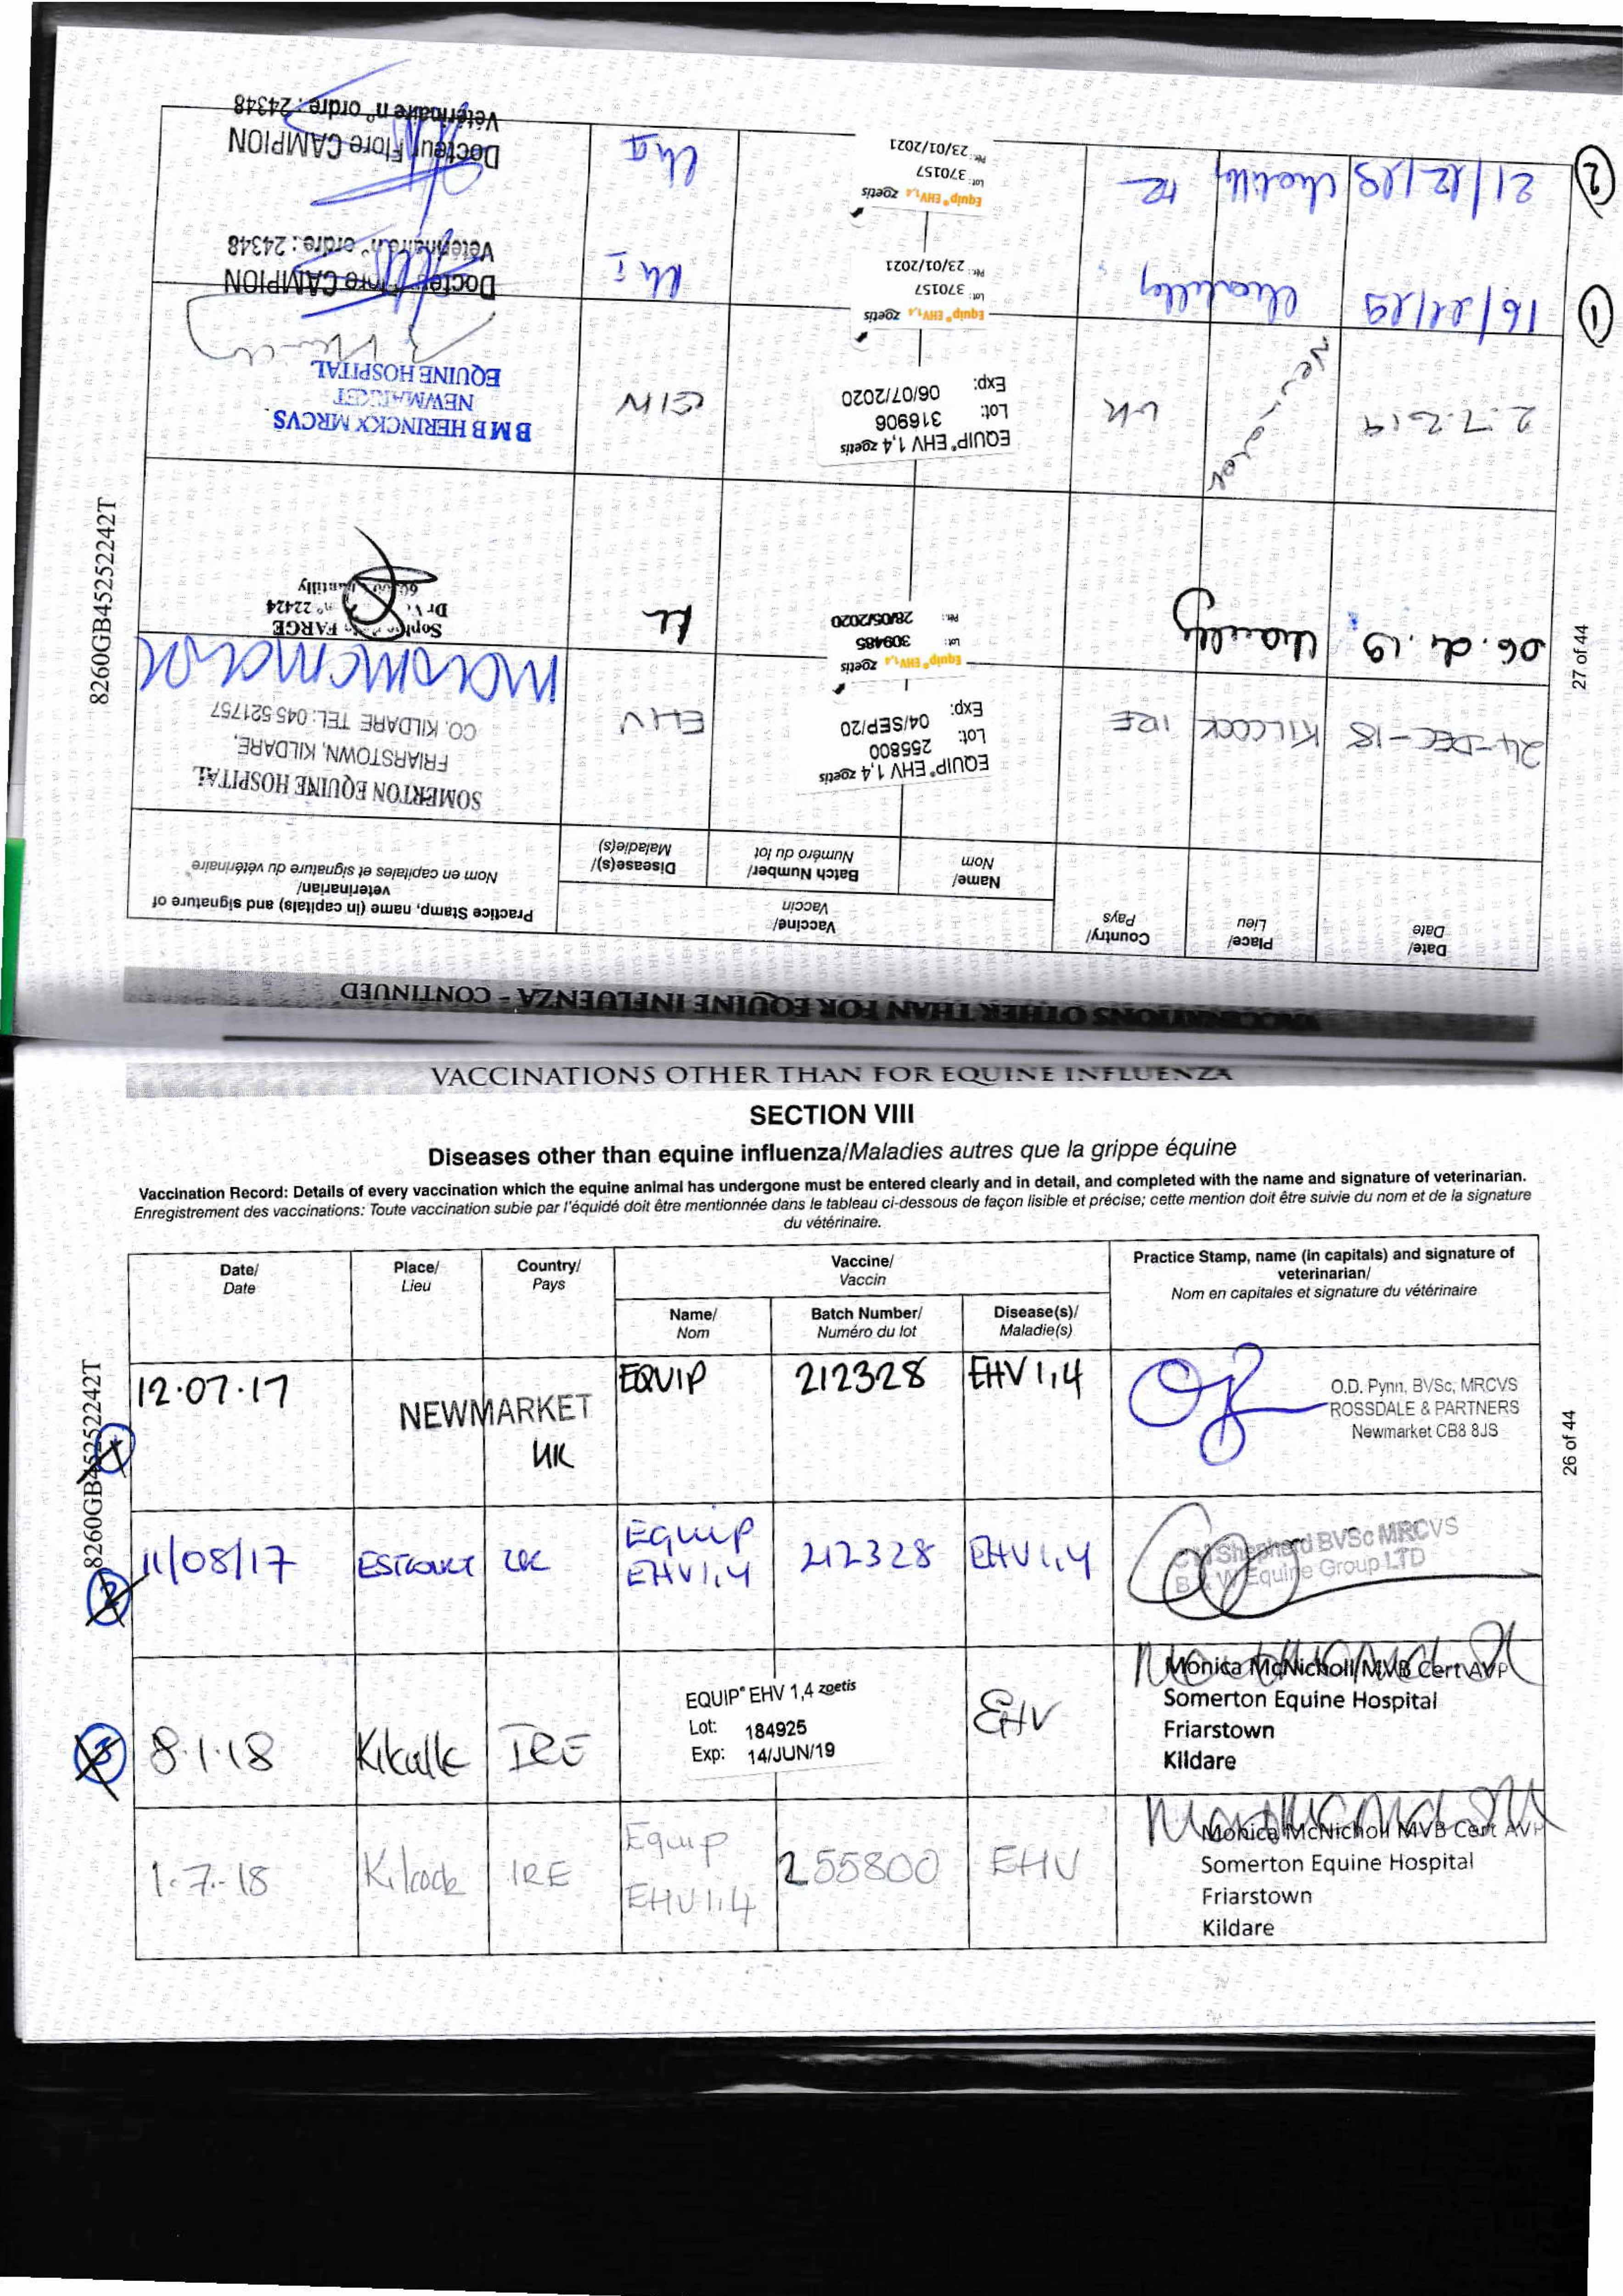 VACCINATIONS OTHER THAN FOR EQUINE INFLUENZA
SECTION VIII
Diseases other than equine influenza/Maladies autres que la grippe équine
Vaccination Record: Details of every vaccination which the equine animal has undergone must be entered clearly and in detail, and completed with the name and signature of veterinarian.
Enregistrement des vaccinations: Toute vaccination subie par l'équidé doit être mentionnée dans le tableau ci-dessous de façon lisible et précise; cette mention doit être suivie du nom et de la signature
du vétérinaire.
Date/
Date
Place/
Lieu
Country/
Pays
Vaccine/
Vaccin
Name/
Nom
Batch Number/
Numéro du lot
Disease(s)/
Maladie(s)
Practice Stamp, name (in capitals) and signature of
veterinarian/
Nom en capitales et signature du vétérinaire
12.07.17
NEWMARKET
UK
EQUIP
212328
EHV 1,4
O.D. Pynn, BVSc, MRCVS
ROSSDALE & PARTNERS
Newmarket CB8 8JS
1
11/08/17
UK
Equip
EHV1,4
212328
EHV1,4
Shepherd BVSc MRCVS
B & W Equine Group LTD
2
8.1.18
IRE
EQUIP® EHV 1,4 zoetis
Lot: 184925
Exp: 14/JUN/19
EHV
Monica McNicholl MVB Cert AVP
Somerton Equine Hospital
Friarstown
Kildare
3
1.7.18
Kilcock
IRE
Equip
EHV1,4
255800
EHV
Monica McNicholl MVB Cert AVP
Somerton Equine Hospital
Friarstown
Kildare
8260GB45252242T
26 of 44
VACCINATIONS OTHER THAN FOR EQUINE INFLUENZA - CONTINUED
Date/
Date
Place/
Lieu
Country/
Pays
Vaccine/
Vaccin
Name/
Nom
Batch Number/
Numéro du lot
Disease(s)/
Maladie(s)
Practice Stamp, name (in capitals) and signature of
veterinarian/
Nom en capitales et signature du vétérinaire
24-DEC-18
KILCOCK
IRE
EQUIP® EHV 1,4 zoetis
Lot: 255800
Exp: 04/SEP/20
EHV
SOMERTON EQUINE HOSPITAL
FRIARSTOWN, KILDARE,
CO. KILDARE TEL: 045 521757
06.04.19
Chantilly
Equip® EHV1,4 zoetis
Lot: 309485
Pér.: 28/05/2020
FARGE
n° 22424
Chantilly
2.7.2019
UK
EQUIP® EHV 1,4 zoetis
Lot: 316906
Exp: 06/07/2020
B M B HERINCKX MRCVS
NEWMARKET
EQUINE HOSPITAL
1
16/11/19
Chantilly
Equip® EHV1,4 zoetis
Lot: 370157
Pér.: 23/01/2021
Docteur Flore CAMPION
Vétérinaire n° ordre : 24348
2
21/12/19
Chantilly
FR
Equip® EHV1,4 zoetis
Lot: 370157
Pér.: 23/01/2021
Docteur Flore CAMPION
Vétérinaire n° ordre : 24348
8260GB45252242T
27 of 44